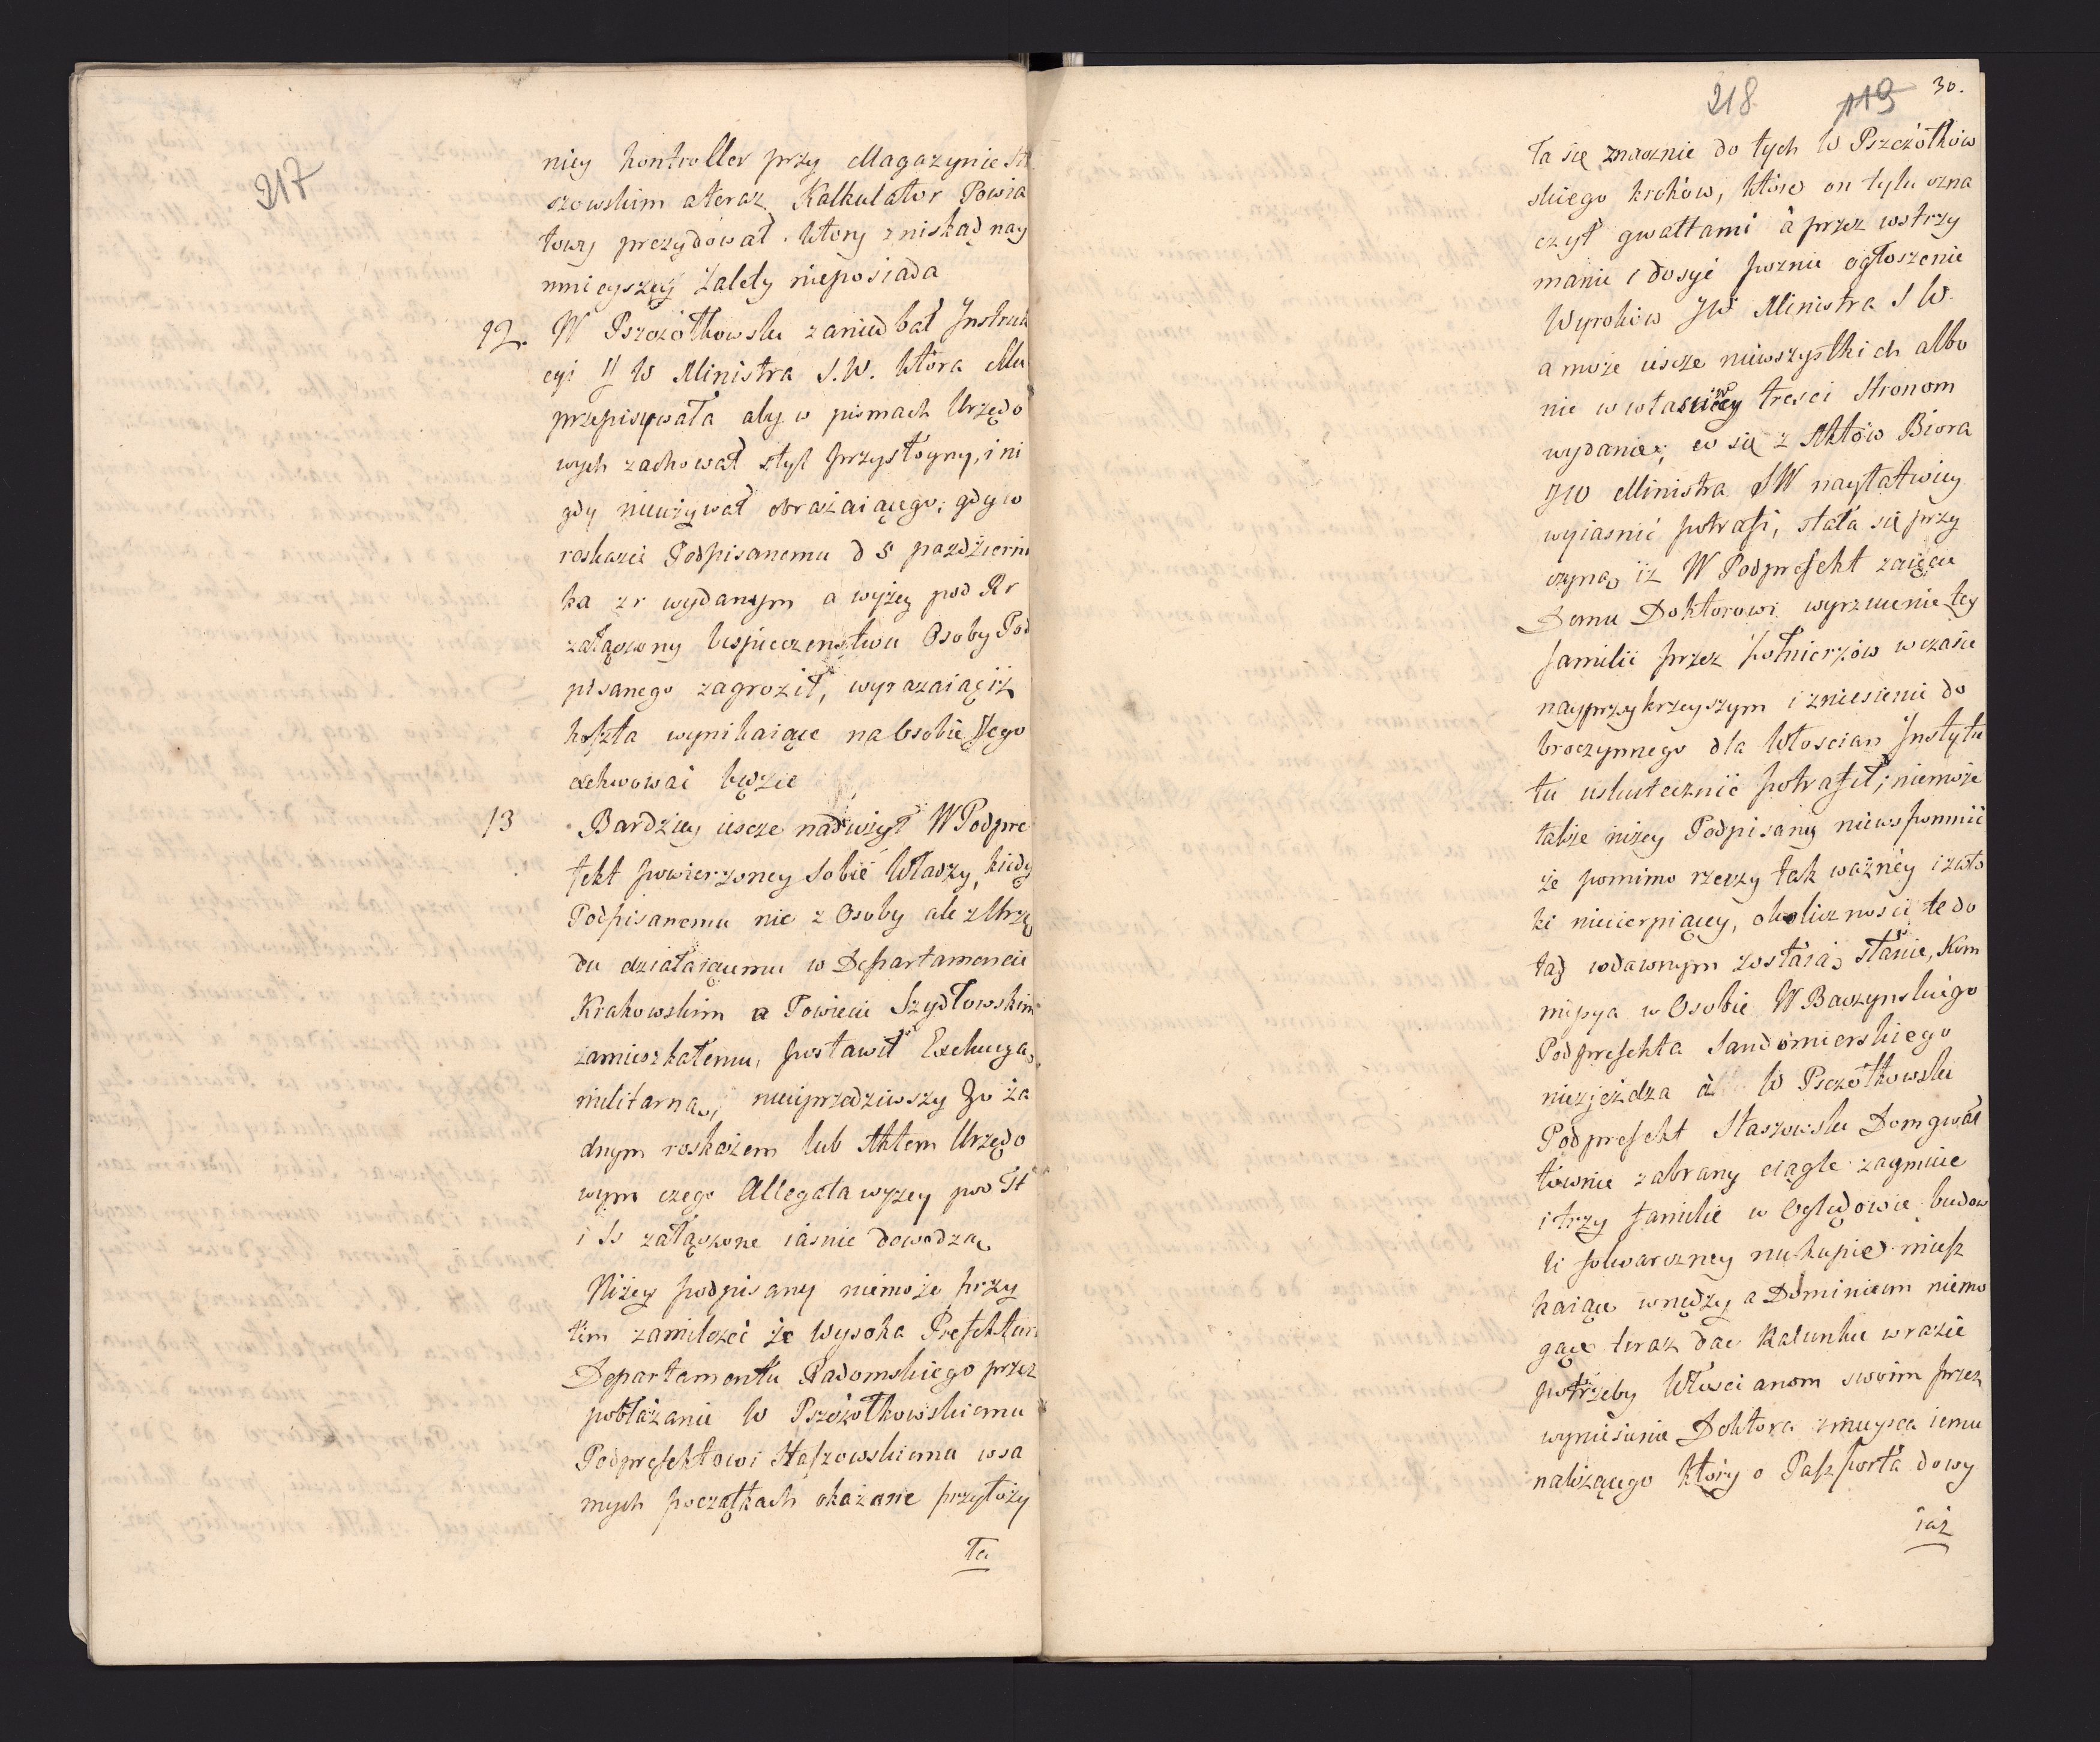 217
niey kontroller przy Magazynie St
szowskim ateraz Kalkulator Powia
towy prezydował. który zniskąd nay
mnieyszęy zalety nieposiada
12. W Pszczółkowski zaniedbał Instruk
cyi JW Ministra S.W. która Mu
przepisywała aby w pismach Urzędo
wych zachował styl przystoyny, i ni
gdy nieużywał obrażaiącego; gdy w
roskazie Podpisanemu d 5 pazdzierni
ka zr wydanym a wyżey pod Rr
załączony bespieczenstwu Osoby Pod
pisanego zagroził, wyrazaiąc iż
koszta wynikaiące na Osobie Jego
exekwować będzie
13 Bardziey iescze nadużył W Podpre
fekt powierzoney sobie Władzy, kiedy
Podpisanemu nie z Osoby ale z Urzę
du działaiącemu w Departamencie
Krakowskim a Powiecie Szydłowskim
zamieszkałemu, postawił Exekucyą
militarną, nieuprzedziwszy Go ża
dnym roskazem lub Aktem Urzędo
wym czego Allegata wyżey pod Tt
i Ss załączone iasnie dowodzą
Niżey podpisany niemoże przy
tem zamilczeć że Wysoka Prefektura
Departamentu Radomskiego przez
pobłażanie W Pszczółkowskiemu
Podprefektowi Staszowskiemu wsa
mych początkach okazane przyłoży
ła
218 119 30.
ła się znacznie do tych W Pszczółkow
skiego kroków, które on tylu ozna
czył gwałtami a przez wstrzy
manie i dosyć pozne ogłoszenie
Wyroków JW Ministra S W.
a może iescze niewszystkich albo
nie w własciwey tresci Stronom
wydanie; co się z Aktów Biora
JW Ministra SW nayłatwiey
wyiasnić potrafi, stała się przy
czyną iż W Podprefekt zaięcie
Domu Doktorowi wyrzucenie tey
familii przez żołnierzów wczasie
nayprzykrzeyszym i zniesienie do
broczynnego dla Włoscian Instytu
tu uskutecznić potrafił; niemoże
także niżey Podpisany niewspomnić
że pomimo rzeczy tak ważnéy i zwło
ki niecierpiącey, okolicznosci te do
tąd wdawnym zostaią stanie, Kom
missya w Osobie W Baczynskiego
Podprefekta Sandomierskiego
niezjeżdza a W Pszczółkowski
Podprefekt Staszowski Dom gwał
townie zabrany ciągle zaymuie
i trzy familie w Oględowie budow
li folwarczney na kupie miesz
kaiące wnędzy a Dominium niemo
gące teraz dać Ratunku wrazie
potrzeby Włoscianom swoim przez
wyniesienie Doktora zmieysca iemu
należącego który o Paszporta dowy
iaz